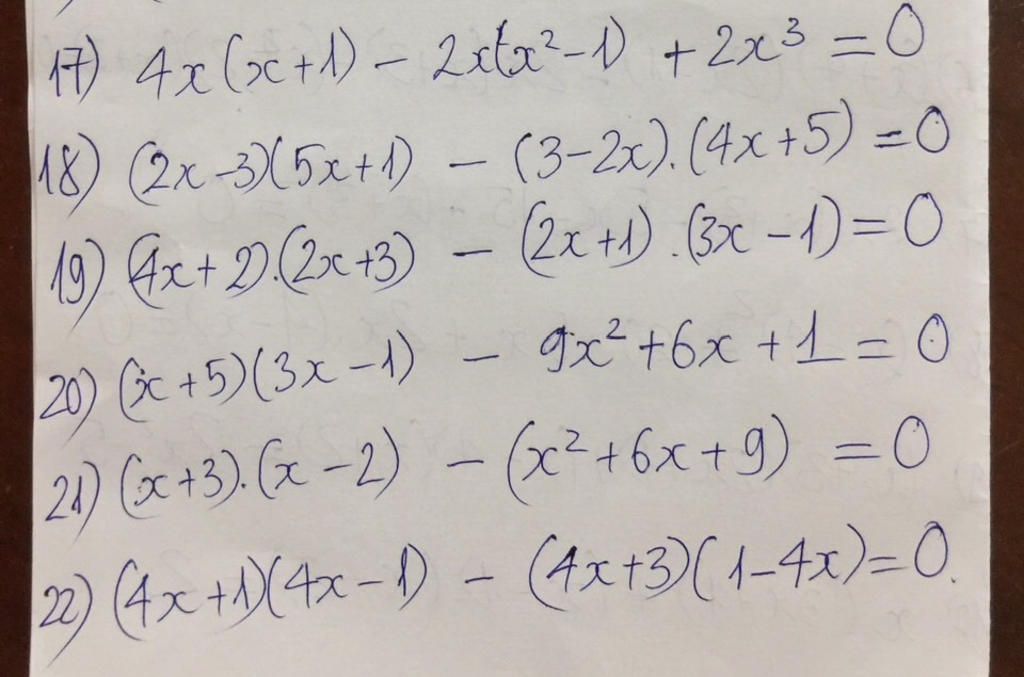 17) 4x(x+1) - 2x(x² - 1) + 2x³ = 0
18) (2x-3)(5x+1) - (3-2x).(4x+5) = 0
19) (4x+2).(2x+3) - (2x+1).(3x-1) = 0
20) (x+5)(3x-1) - 9x² + 6x + 1 = 0
21) (x+3).(x-2) - (x² + 6x + 9) = 0
22) (4x+1)(4x-1) - (4x+3)(1-4x) = 0.